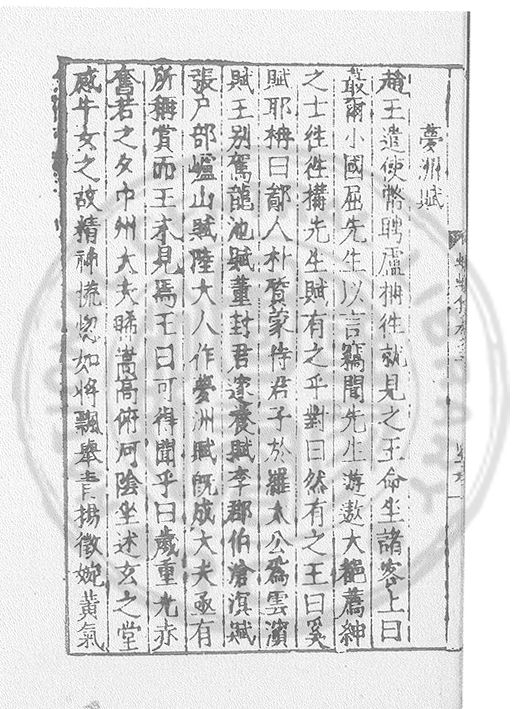 夢洲賦
趙王遣使幣聘盧柟往就見之王命坐諸客上曰
蕞爾小國屈先生以言竊聞先生游遨大都薦紳
之士往往搆先生賦有之乎對曰然有之王曰奚
賦耶柟曰鄙人朴質蒙侍君子於羅太公爲雲濱
賦王别駕龍池賦董封君逐賦李郡伯滄溟賦
張户部嶇山賦陸大人作夢洲賦既成大夫亟有
所稱賞而王未見焉王曰可得聞乎曰歲重光赤
奮若之夕中州大夫晞嵩高俯河陰坐述玄之堂
感牛女之故精神慌惚如將飄舉青揚徵婉黃氣